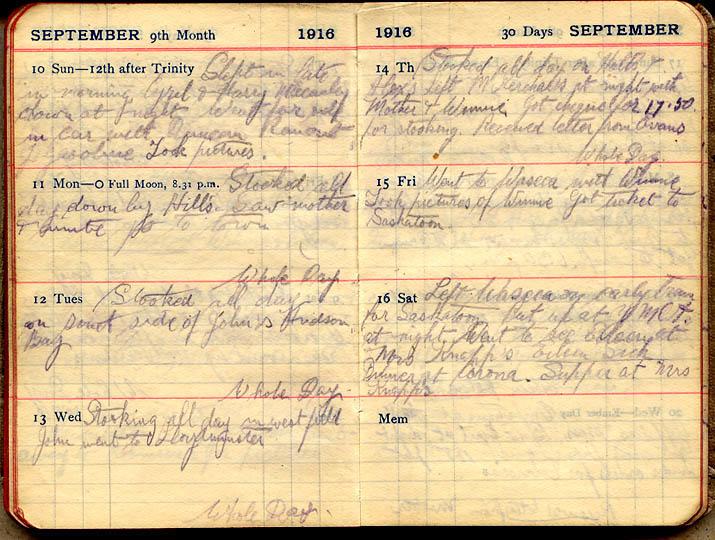 SEPTEMBER 9th Month 1916
10 Sun—12th after Trinity Slept in late
in morning
down at night. Went for
in car with
Gasoline Took pictures.
11 Mon—O Full Moon, 8.31 p.m. Stooked all
day down by Hills. Saw mother
go to town
Whole Day
12 Tues Stooked all day
on south side of John's Hudson
Bay
Whole Day
13 Wed Stooking all day in west field
John went to Lloydminster
Whole Day.
1916 30 Days SEPTEMBER
14 Th Stooked all day on
Left at night with
Mother & Winnie. Got cheque for 17.50
for stooking. Received letter from Evans
Whole Day.
15 Fri Went to Waseca with Winnie
Took pictures of Winnie Got ticket to
Saskatoon
16 Sat Left Waseca on early Train
for Saskatoon Put up at Y.M.C.A.
at night. Went to see Eileen at
Mrs Knapp's Eileen Sick
Dinner at Corona. Supper at Mrs
Knapp's
Mem